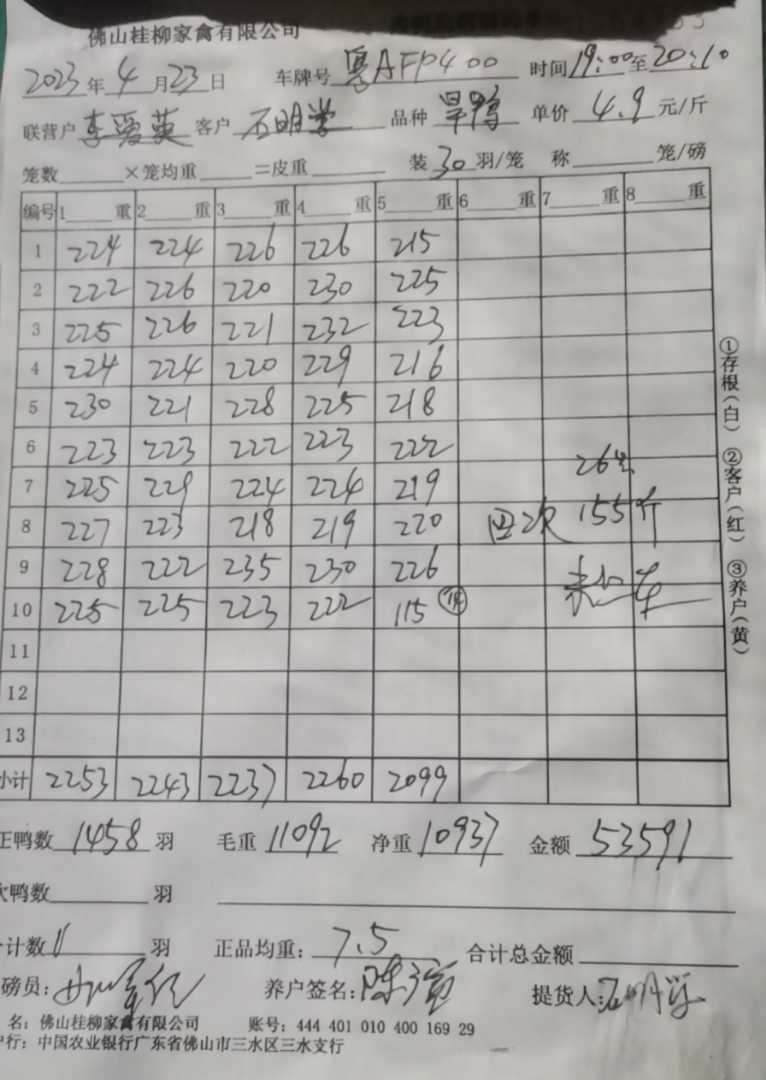 佛山桂柳家禽有限公司
2023年4月23日 车牌号 粤AFP400 时间19:00至20:10
联营户 李爱英 客户 石明学 品种 旱鸭 单价 4.9 元/斤
笼数 ×笼均重 =皮重 装30羽/笼 称 笼/磅
编号 1 重 2 重 3 重 4 重 5 重 6 重 7 重 8 重
1 224 224 226 226 215
2 222 226 220 230 225
3 225 226 221 232 223
4 224 224 220 229 216
5 230 221 228 225 218
6 223 223 222 223 222
7 225 229 224 224 219 26
8 227 223 218 219 220 四次 155斤
9 228 222 235 230 226
10 225 225 223 222 115
11
12
13
小计 2253 2243 2237 2260 2099
正鸭数 1458 羽 毛重 11092 净重 10937 金额 53591
次鸭数 羽
计数 羽 正品均重: 7.5 合计总金额
磅员: 养户签名: 陈 提货人: 石明学
名: 佛山桂柳家禽有限公司 账号: 444 401 010 400 169 29
行: 中国农业银行广东省佛山市三水区三水支行
①存根(白) ②客户(红) ③养户(黄)